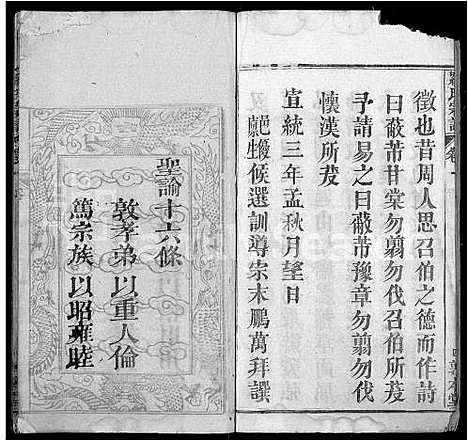 徵也昔周人思召伯之德而作詩
曰蔽芾甘棠勿翦勿伐召伯所茇
予請易之曰蔽芾豫章勿翦勿伐
懷漢所茇
宣統三年孟秋月望日
候選訓導宗末鵬萬拜譔
聖諭十六條
敦孝弟以重人倫
篤宗族以昭雍睦